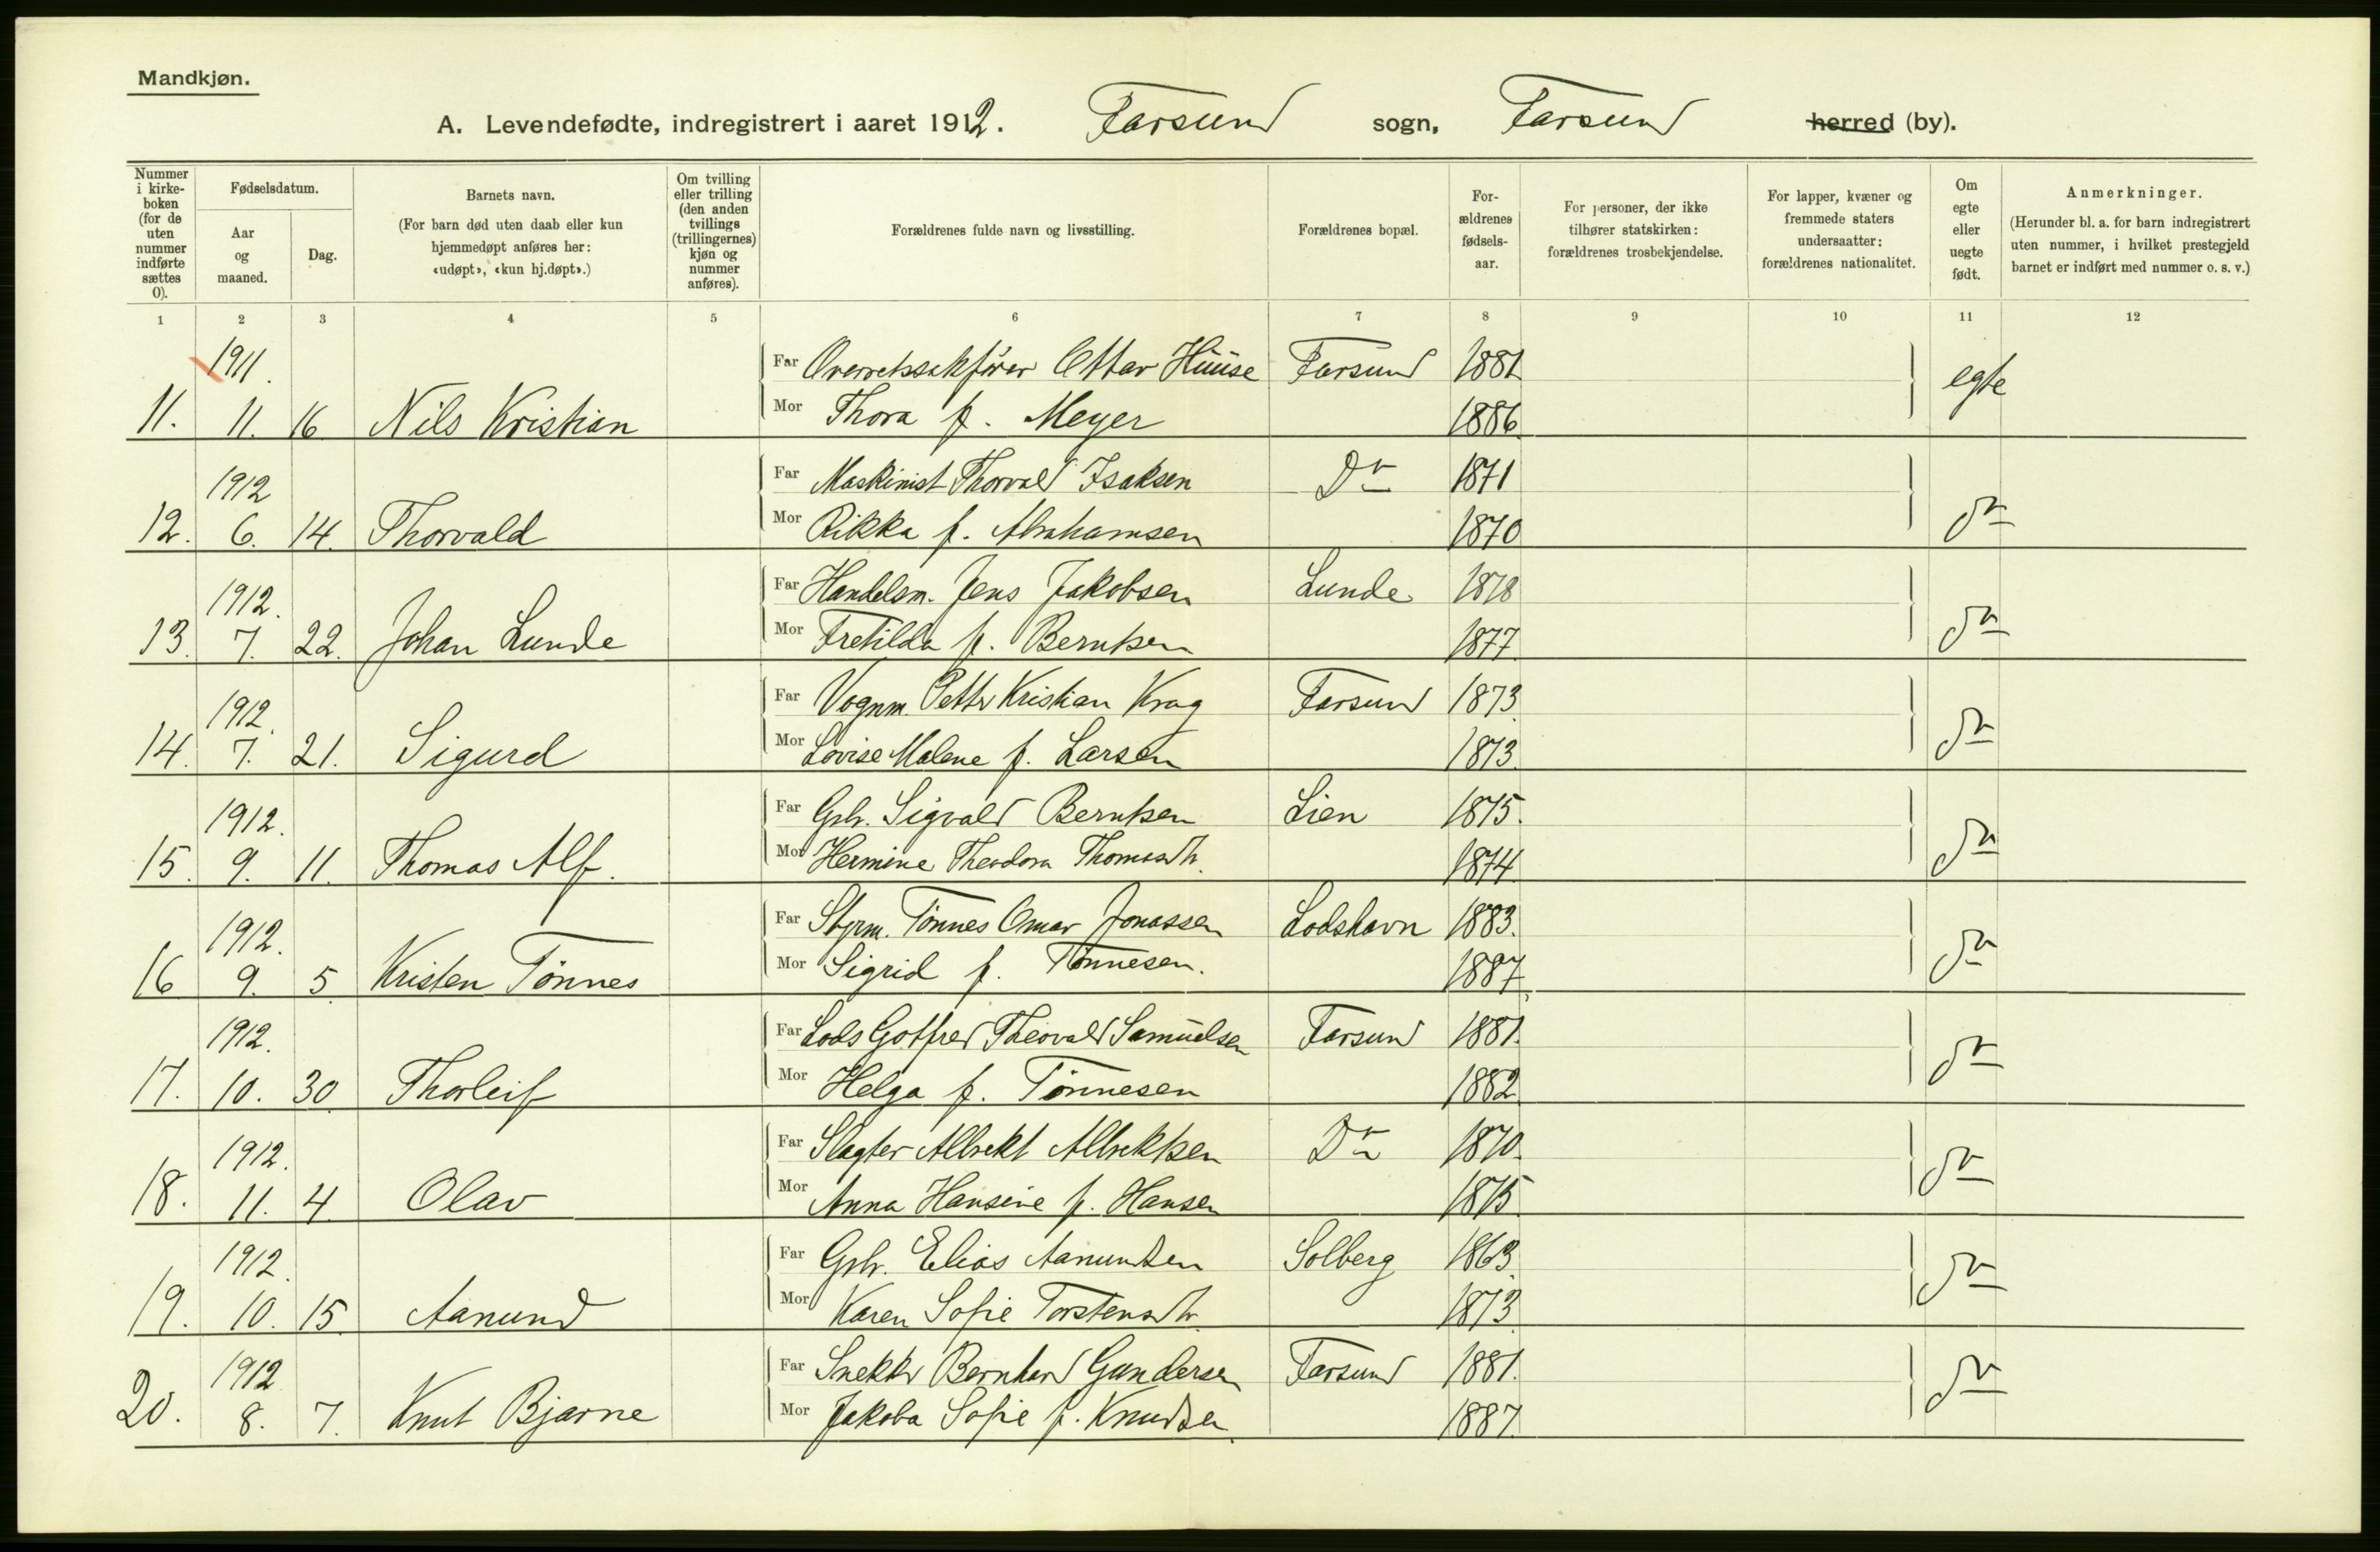 Mandkjøn.
A. Levendefødte, indregistrert i aaret 1912. Farsund sogn, Farsund herred (by).
Nummer i kirke-boken (for de uten nummer indførte sættes 0).
Fødselsdatum.
Aar og maaned.
Dag.
Barnets navn.
(For barn død uten daab eller kun hjemmedøpt anføres her: «udøpt», «kun hj.døpt».)
Om tvilling eller trilling (den anden tvillings (trillingernes) kjøn og nummer anføres).
Forældrenes fulde navn og livsstilling.
Forældrenes bopæl.
For-ældrenes fødsels-aar.
For personer, der ikke tilhører statskirken: forældrenes trosbekjendelse.
For lapper, kvæner og fremmede staters undersaatter: forældrenes nationalitet.
Om egte eller uegte født.
Anmerkninger.
(Herunder bl. a. for barn indregistrert uten nummer, i hvilket prestegjeld barnet er indført med nummer o. s. v.)
1 2 3 4 5 6 7 8 9 10 11 12
1911. Far Overretssakfører Ottar Huuse Farsund 1881 egte
11. 11. 16 Nils Kristian Mor Thora f. Meyer 1886
1912 Far Maskinist Thorvald Isaksen Do 1871 do
12. 6. 14. Thorvald Mor Rikka f. Abrahamsen 1870
1912. Far Handelsm. Jens Jakobsen Lunde 1878 do
13. 7. 22. Johan Lunde Mor Fretilda f. Berntsen 1877
1912. Far Vognm. Petter Kristian Krag Farsund 1873 do
14. 7. 21. Sigurd Mor Lovise Malene f. Larsen 1873
1912. Far Grb. Sigvald Berntsen Lien 1875. do
15. 9. 11. Thomas Alf. Mor Hermine Theodora Thomasdtr. 1874
1912. Far Styrm. Tønnes Omar Jonassen Lodshavn 1883. do
16 9. 5 Kristen Tønnes Mor Sigrid f. Tønnesen. 1887
1912. Far Lods Gotfred Theovald Samuelsen Farsund 1881. do
17. 10. 30 Thorleif Mor Helga f. Tönnesen 1882
1912. Far Slagter Albrekt Albrektsen Do 1870. do
18. 11. 4. Olav Mor Anna Hansine f. Hansen 1875
1912. Far Grb. Elias Aanundsen Solberg 1863 do
19. 10. 15 Aanund Mor Karen Sofie Torstensdtr. 1873
1912 Far Snekker Bernhard Gundersen Farsund 1881. do
20. 8. 7. Knut Bjarne Mor Jakoba Sofie f. Knudsen 1887.